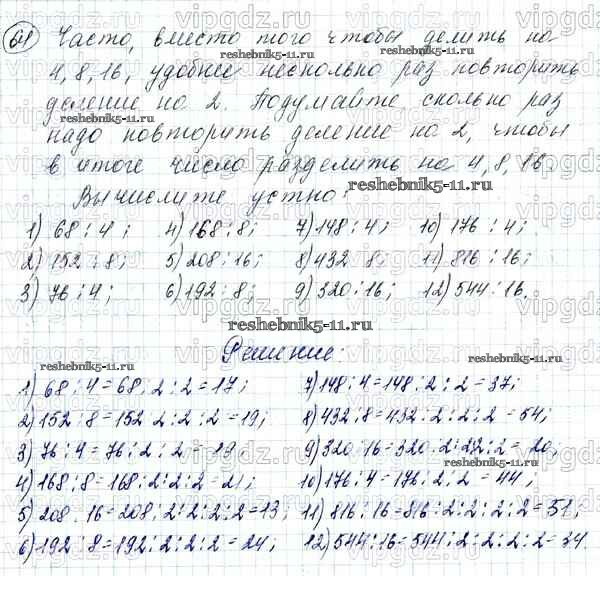 64 Часто, вместо того чтобы делить на
4, 8, 16, удобнее несколько раз повторить
деление на 2. Подумайте, сколько раз
надо повторить деление на 2, чтобы
в итоге число разделить на 4, 8, 16.
Вычислите устно:
1) 68 : 4; 4) 168 : 8; 7) 148 : 4; 10) 176 : 4;
2) 152 : 8; 5) 208 : 16; 8) 432 : 8; 11) 816 : 16;
3) 76 : 4; 6) 192 : 8; 9) 320 : 16; 12) 544 : 16.
Решение:
1) 68 : 4 = 68 : 2 : 2 = 17; 7) 148 : 4 = 148 : 2 : 2 = 37;
2) 152 : 8 = 152 : 2 : 2 : 2 = 19; 8) 432 : 8 = 432 : 2 : 2 : 2 = 54;
3) 76 : 4 = 76 : 2 : 2 = 19 9) 320 : 16 = 320 : 2 : 2 : 2 : 2 = 20;
4) 168 : 8 = 168 : 2 : 2 : 2 = 21; 10) 176 : 4 = 176 : 2 : 2 = 44;
5) 208 : 16 = 208 : 2 : 2 : 2 : 2 = 13; 11) 816 : 16 = 816 : 2 : 2 : 2 : 2 = 51;
6) 192 : 8 = 192 : 2 : 2 : 2 = 24; 12) 544 : 16 = 544 : 2 : 2 : 2 : 2 = 34.
reshebnik5-11.ru
vipgdz.ru